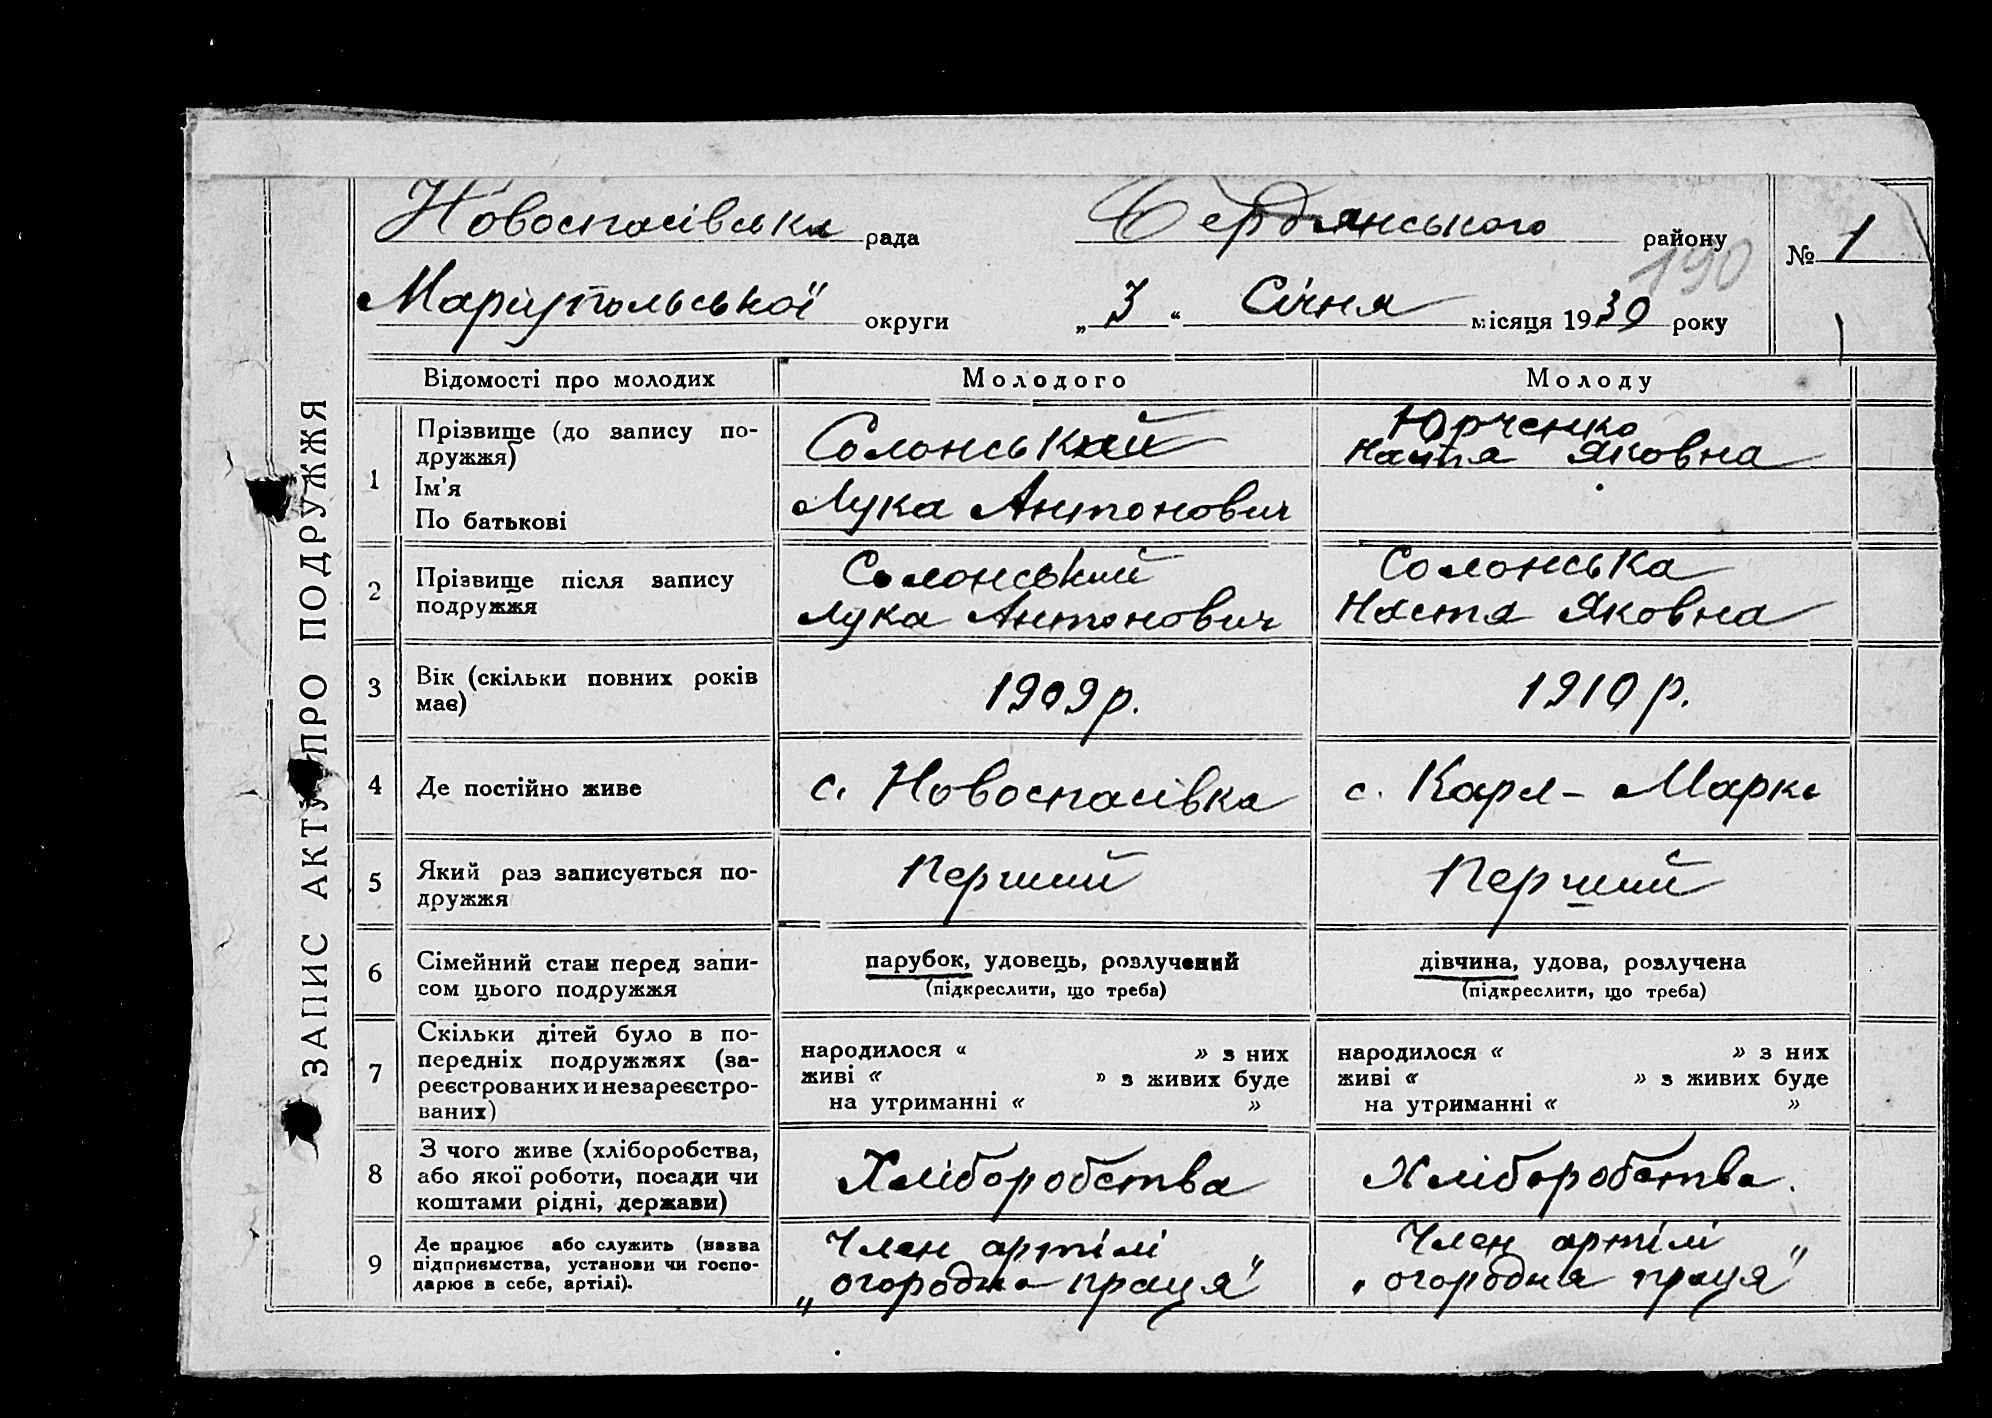 Новоспасівська рада Бердянського району № 1
190
Маріупольської округи „ 3 “ Січня місяця 1930 року
ЗАПИС АКТУ ПРО ПОДРУЖЖЯ
Відомості про молодих Молодого Молоду
1 Прізвище (до запису по-
дружжя)
Ім'я
По батькові
Солонський
Лука Антонович
Юрченко
Настя Яковна
2 Прізвище після запису
подружжя
Солонський
Лука Антонович
Солонська
Настя Яковна
3 Вік (скільки повних років
має)
1909 р.
1910 р.
4 Де постійно живе
с. Новоспасівка
с. Карл-Маркс
5 Який раз записується по-
дружжя
Перший
Перший
6 Сімейний стан перед запи-
сом цього подружжя
парубок, удовець, розлучений
(підкреслити, що треба)
дівчина, удова, розлучена
(підкреслити, що треба)
7 Скільки дітей було в по-
передніх подружжях (за-
реєстрованих и незареєстро-
ваних)
народилося « » з них
живі « » з живих буде
на утриманні « »
народилося « » з них
живі « » з живих буде
на утриманні « »
8 З чого живе (хліборобства,
або якої роботи, посади чи
коштами рідні, держави)
Хліборобства
Хліборобства.
9 Де працює або служить (назва
підприємства, установи чи госпо-
дарює в себе, артілі).
Член артілі
„огородня праця"
Член артілі
„огородня праця"